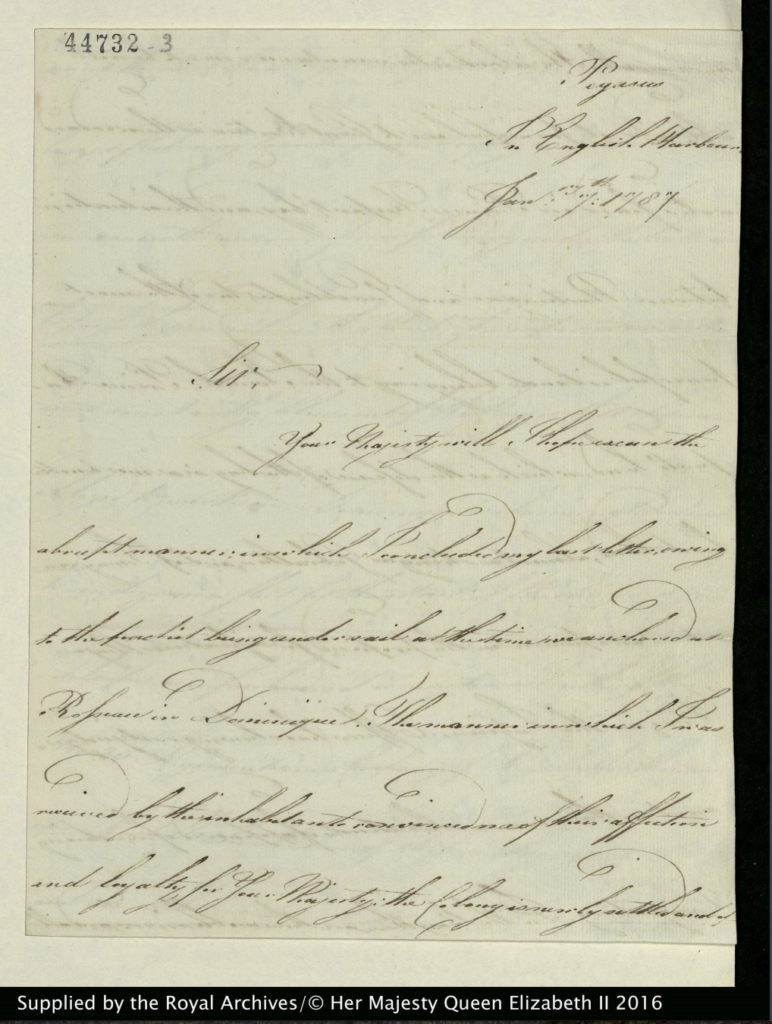 44732-3
Pegasus
In English Harbour
Jan: 17th: 1787
Sir,
Your Majesty will I hope excuse the
abrupt manner in which I concluded my last letter, owing
to the packet being under sail at the time we anchored at
Roseau in Dominique. The manner in which I was
received by the inhabitants convinced me of their affection
and loyalty for Your Majesty: the Colony is newly settled and of
Supplied by the Royal Archives/© Her Majesty Queen Elizabeth II 2016